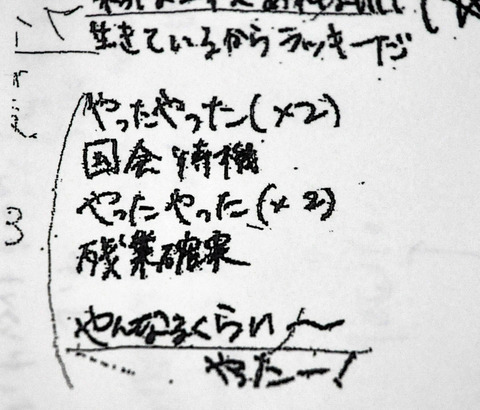 生きているからラッキーだ
やったやった(×2)
国会待機
やったやった(×2)
残業確実
3
やんなるくらい〜
やったー!